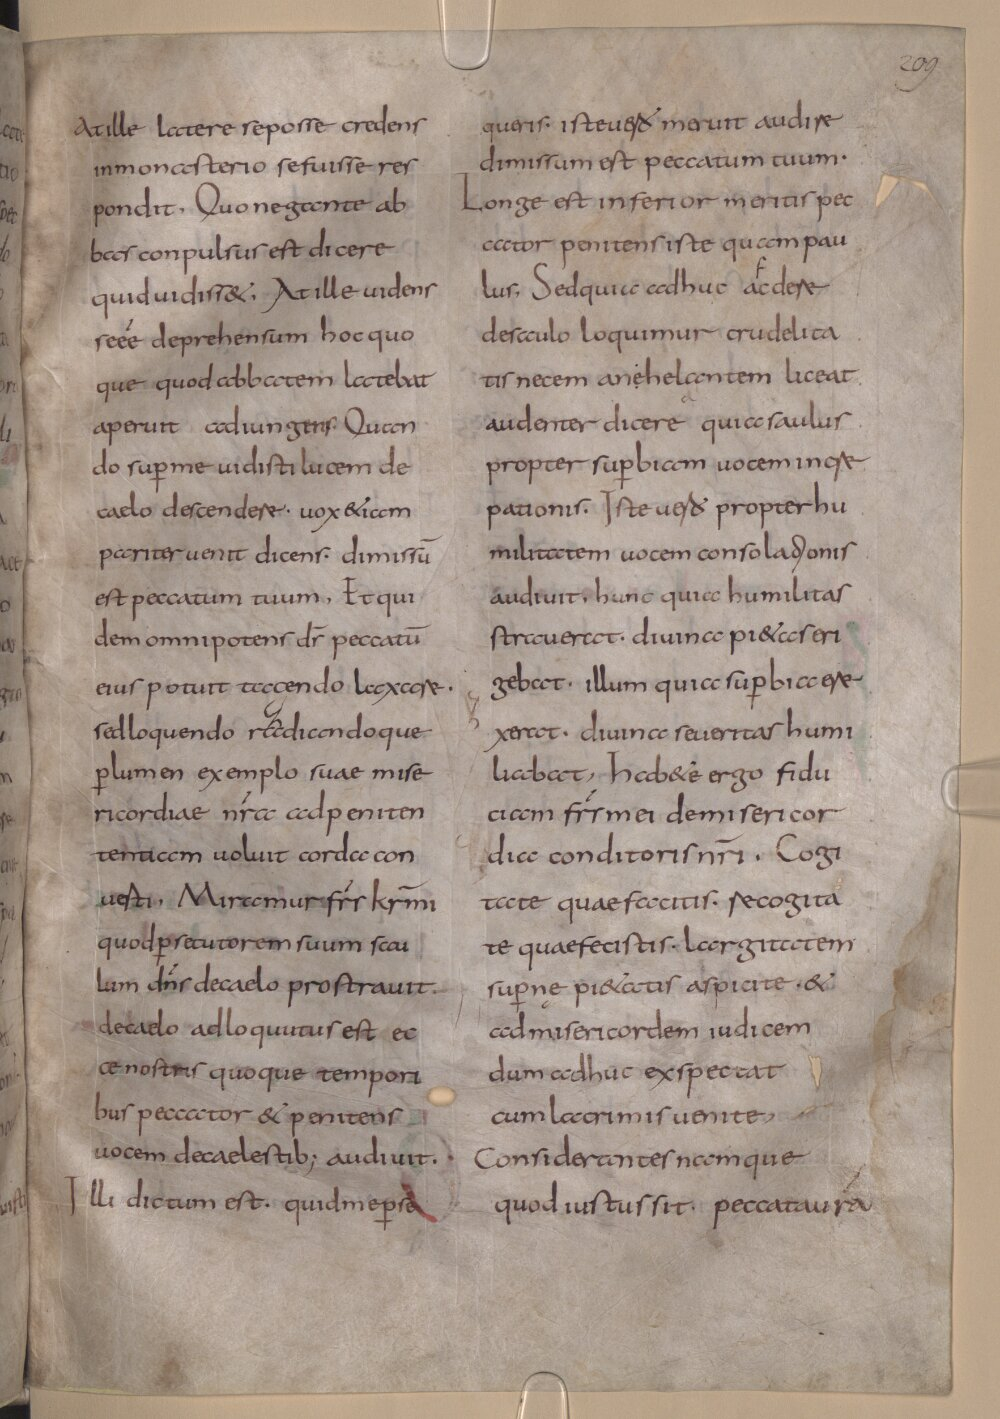 209
At ille latere se posse credens
in monasterio se fuisse res
pondit. Quo negante ab
bas conpulsus est dicere
quid uidiss&. At ille uidens
se eé deprehensum hoc quo
que quod abbatem latebat
aperuit adiungens. Quan
do sup̄ me uidisti lucem de
caelo descendere. uox &iam
pariter uenit dicens. dimissū
est peccatum tuum. Et qui
dem omnipotens d̄s peccatū
eius potuit tacendo laxare.
sed loquendo radiandoque
p̄ lumen exemplo suae mise
ricordiae nr̄a ad peniten
tentiam uoluit corda con
uerti. Miramur fr̄s kr̄mi
quod p̄secutorem suum sau
lum dn̄s de caelo prostrauit.
de caelo adloquutus est ec
ce nostris quoque tempori
bus peccator & penitens
uocem de caelestib; audiuit.
Illi dictum est. quid me p̄se
queris. iste uero meruit audire
dimissum est peccatum tuum.
Longe est inferior meritis pec
cator penitens iste quam pau
lus. Sed quia adhuc ac de re
de saulo loquimur crudelita
tis necem anehelantem liceat
audenter dicere quia saulus
propter sup̄biam uocem incre
pationis. Iste uero propter hu
militatem uocem consolationis
audiuit. hunc quia humilitas
strauerat. diuina pi&as eri
gebat. illum quia sup̄bia ere
xerat. diuina seueritas humi
liabat. Hab&e ergo fidu
ciam fr̄s mei de misericor
dia conditoris nr̄i. Cogi
tate quae facitis. recogita
te quae fecistis. largitatem
sup̄nę pi&atis aspicite. &
ad misericordem iudicem
dum adhuc exspectat
cum lacrimis uenite.
Considerantes namque
quod iustus sit. peccata ura